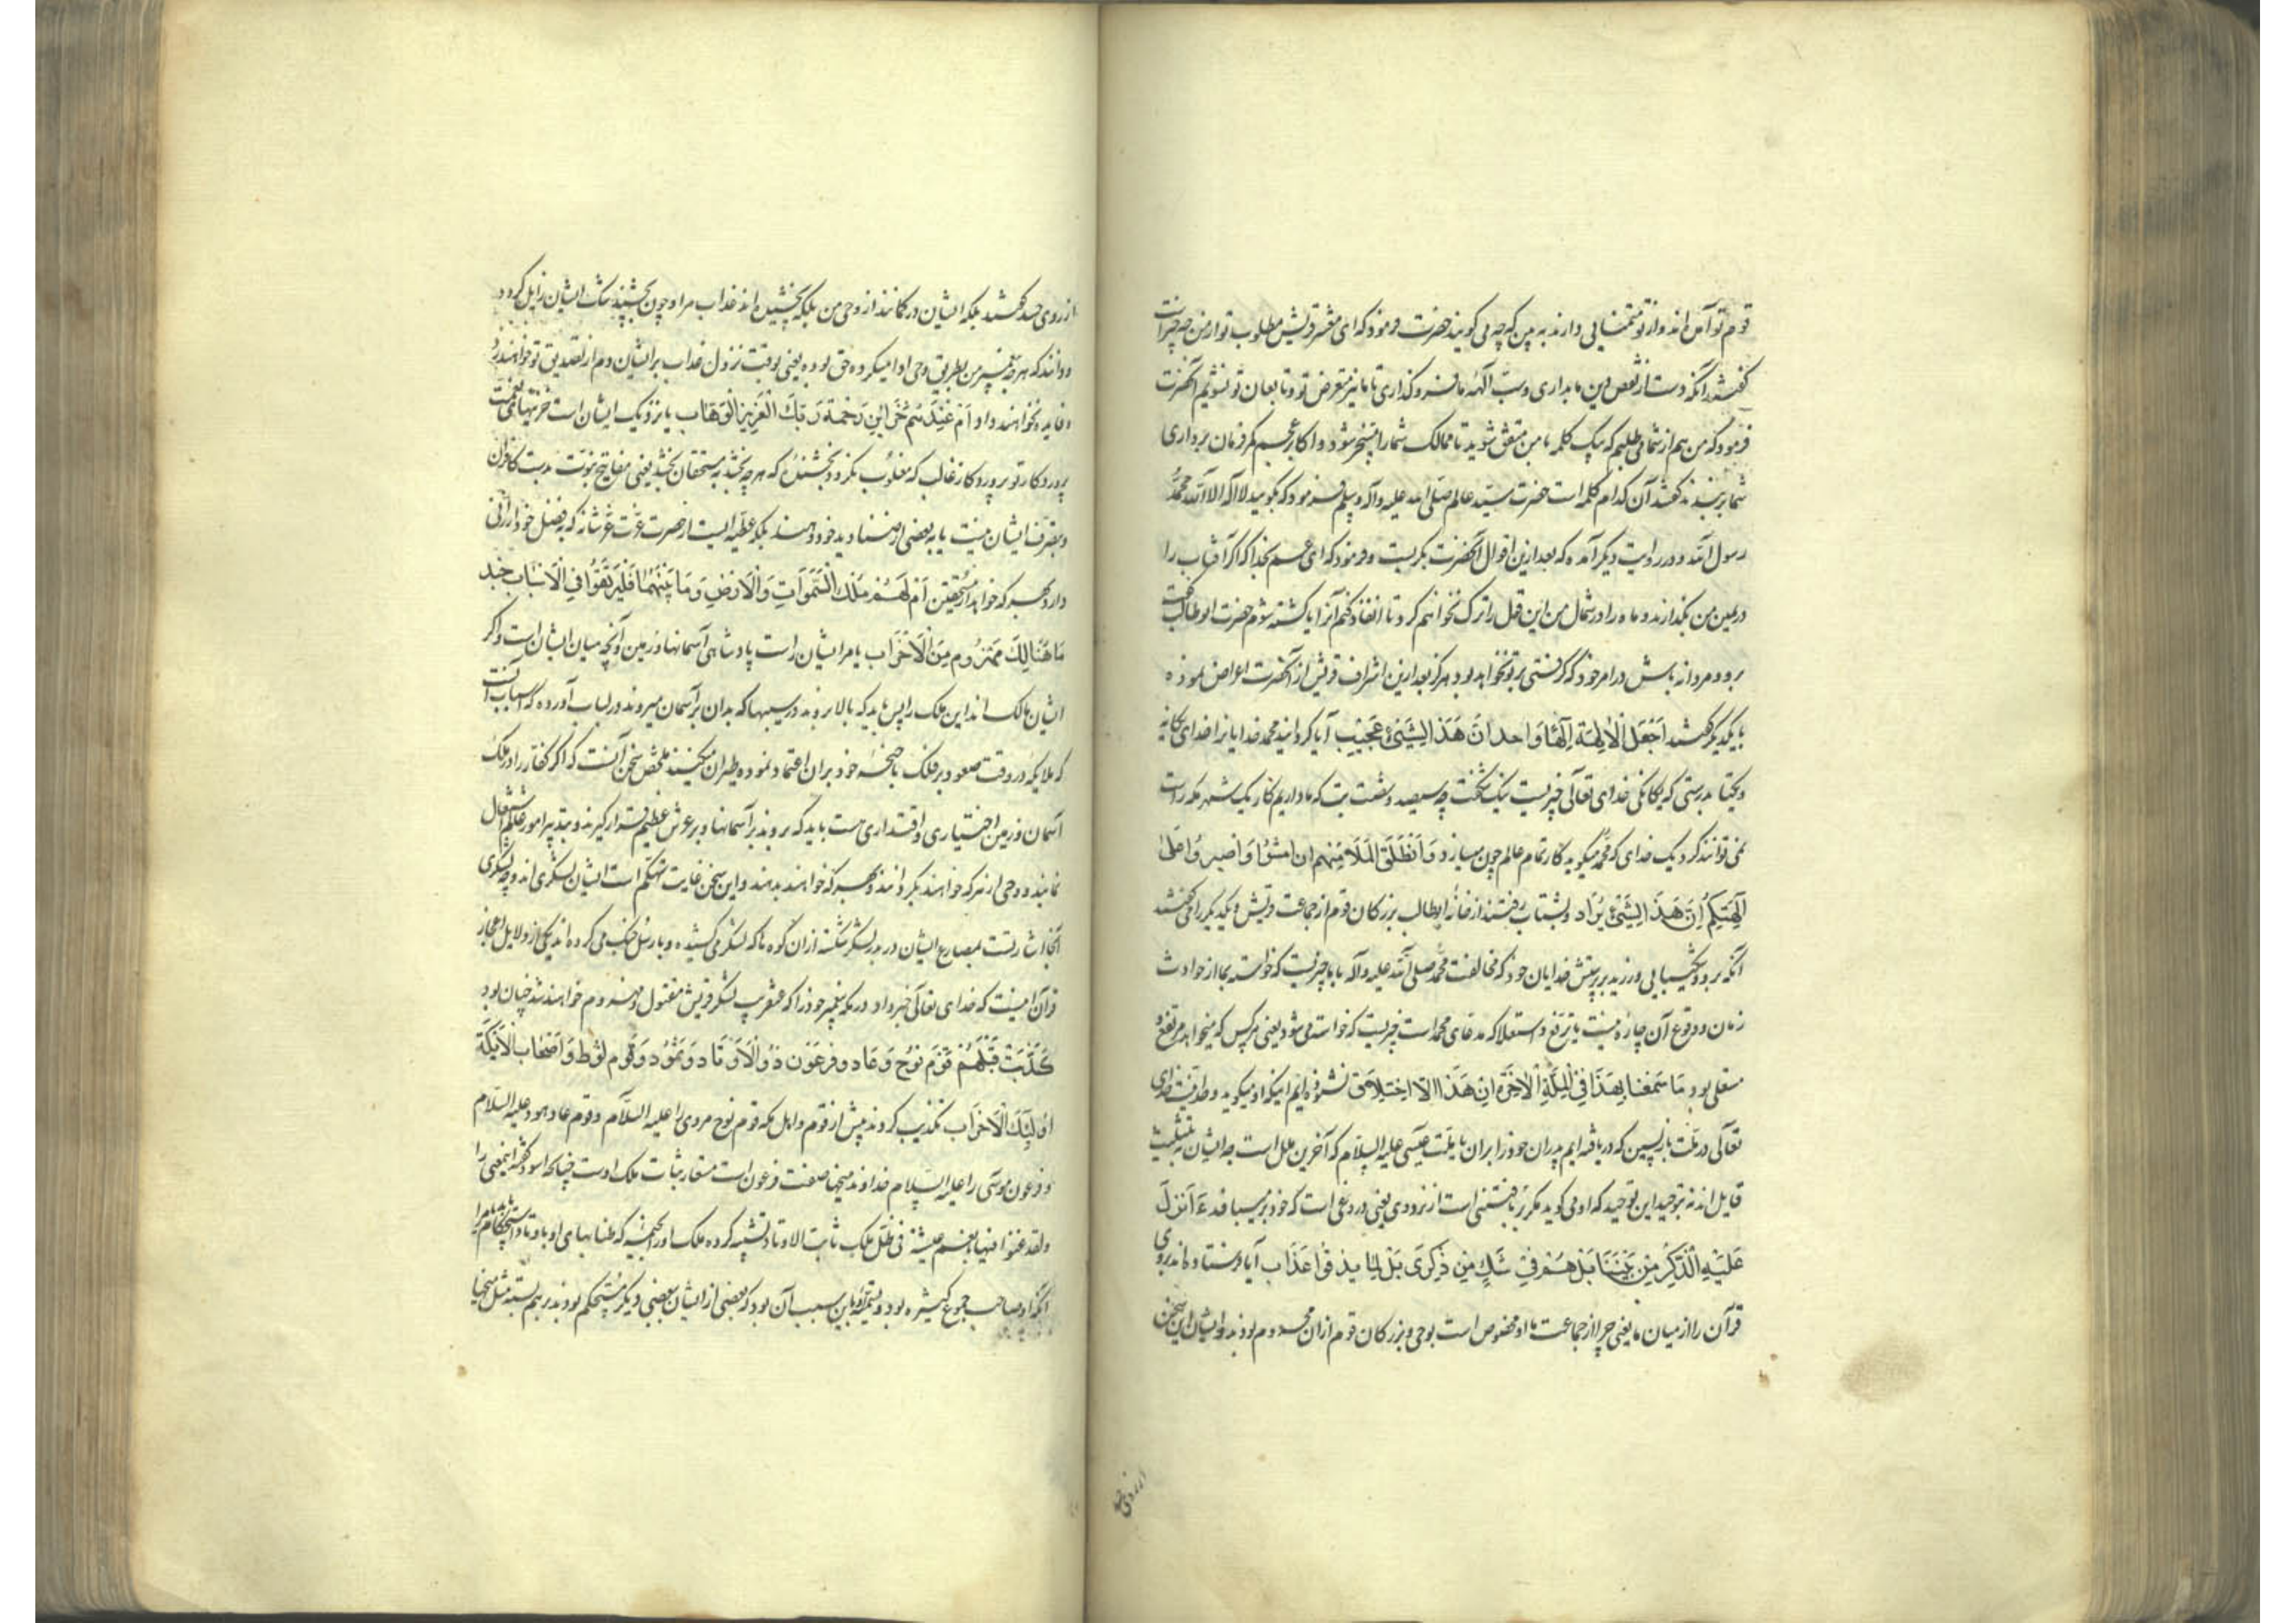 قوم تو آمده اند و از تو تمنایی دارند به بین که چه می کویند حضرت فرمود که ای معشر قریش مطلوب تو از من چه چیز است
کفتند آنکه دست از نقض دین ما بداری و سب آلهه ما فرو کذاری تا ما نیز متعرض تو و تابعان تو نشویم آنحضرت
فرمود که من هم از شما می طلبم که بیک کلمه با من متفق شوید تا ممالک شما را مسخر شود و اکابر عجم کمر فرمان برداری
شما بربندند کفتند آن کدام کلمه است حضرت سید عالم صلی الله علیه و آله و سلم فرمود که بکویید لا اله الا الله محمد
رسول الله و در روایت دیکر آمده که بعد ازین اقوال آنحضرت بکریست و فرمود که ای عم بخدا که اکر آفتاب را
در یمین من بکذارند و ماه را در شمال من این قول را ترک نخواهم کرد تا انفاذ کنم آنرا یا کشته شوم حضرت ابوطالب کفت
برو و مردانه باش در امر خود که کرفتی بر تو نخواهد بود هرکز بعد ازین اشراف قریش از آنحضرت اعراض نموده
با یکدیکر کفتند اَجَعَلَ الْالِهَةَ اِلٰهًا وَاحِدًا اِنَّ هَذَا لَشَیْءٌ عُجَیب آیا کردانید محمد خدایانرا خدای یکانه
و یکتا بدرستی که یکانکی خدای تعالی چیزیست نیک شکفت چه سیصد و شصت بت که ما داریم کار یک شهر مکه راست
نمی توانند کرد یک خدای که محمد میکوید کار تمام عالم چون میسازد وَاَنْطَلَقَ الْمَلَأُ مِنْهُم اَنِ امْشُوا وَاصْبِرُوا عَلٰی
اٰلِهَتِکُم اِنَّ هَذَا لَشَیْءٌ یُرَاد و بشتاب رفتند از خانه ابوطالب بزرکان قوم از جماعت قریش و یکدیکر را می کفتند
آنکه بروید و شکیبایی ورزید بر پرستش خدایان خود که مخالفت محمد صلی الله علیه و آله با ما چیزیست که خواسته بما از حوادث
زمان و وقوع آن چاره نیست یا ترفع و استعلا که مدعای محمد است چیزیست که خواسته می شود یعنی هرکس که میخواهد مرتفع و
مستعلی بود مَا سَمِعْنَا بِهَذَا فِی الْمِلَّةِ الْاٰخِرَةِ اِنْ هَذَا اِلَّا اخْتِلَاق نشنوده ایم اینکه او میکوید وحدانیت خدای
تعالی در ملت بازپسین که دریافته ایم پدران خود را بران یا ملت عیسی علیه السلام که آخرین ملل است چه ایشان به تثلیث
قایل اند نه بتوحید این توحید که او می کوید مکر بربافتنی است از نزد وی یعنی دروغی است که خود برمیبافد ءَاُنْزِلَ
عَلَیْهِ الذِّکْرُ مِنْ بَیْنِنَا بَلْ هُمْ فِی شَكٍّ مِنْ ذِکْرِی بَلْ لَمَّا یَذُوقُوا عَذَاب آیا فرستاده اند بروی
قرآن را از میان ما یعنی چرا از جماعت ما او مخصوص است بوحی و بزرکان قوم ازان محروم بودند و ایشان این سخن
از روی حسد کفتند بلکه ایشان در کمانند از وحی من بلکه نچشیده اند عذاب مرا و چون بچشند شک ایشان زایل کردد
و دانند که هرچه پیغمبر من بطریق وحی ادا میکرده حق بوده یعنی بوقت نزول عذاب بر ایشان دم از تصدیق تو خواهند زد
و فایده نخواهند داد اَمْ عِنْدَهُمْ خَزَائِنُ رَحْمَةِ رَبِّكَ الْعَزِیزِ الْوَهَّاب یا نزدیک ایشان است خزینهای نعمت
پروردکار تو پروردکار غالب که مغلوب نکردد و بخشنده که هرچه بخشد به مستحقان بخشد یعنی مفاتیح نبوت بدست کافران
و بتصرف ایشان نیست یا به بعضی از صنادید خود دهند بلکه عطیه ایست از حضرت عزت عز شانه که بفضل خود ارزانی
دارد بهر که خواهد از مستحقین اَمْ لَهُمْ مُلْكُ السَّمٰوَاتِ وَالْاَرْضِ وَمَا بَیْنَهُمَا فَلْیَرْتَقُوا فِی الْاَسْبَاب جُنْدٌ
مَا هُنَالِكَ مَهْزُومٌ مِنَ الْاَحْزَاب یا مر ایشان راست پادشاهی آسمانها و زمین و آنچه میان ایشان است و اکر
ایشان مالک اند این ملک را پس باید که بالا روند در سببها که بدان بر آسمان میروند و در لباب آورده که اسباب آنست
که ملایکه در وقت صعود بر فلک باجنحه خود بران اعتماد نموده طیران میکنند ملخص سخن آنست که اکر کفار را در ملک
آسمان و زمین اختیاری و اقتداری هست باید که بروند بر آسمانها و بر عرش عظیم قرار کیرند و بتدبیر امور عالم اشتغال
نمایند و وحی از هر که خواهند بکردانند و بهر که خواهند بدهند و این سخن غایت تهکم است ایشان لشکری اند و چه لشکری
آنجا اشارتست بمصارع ایشان در بدر لشکر شکسته ازان کروه که لشکر می کشیده و با رسل جنک می کرده اند یکی از دلایل اعجاز
قرآن اینست که خدای تعالی خبر داد در مکه پیغمبر خود را که عنقریب لشکر قریش مقتول و مهزوم خواهند شد چنان بود
کَذَّبَتْ قَبْلَهُمْ قَوْمُ نُوحٍ وَعَادٌ وَفِرْعَوْنُ ذُو الْاَوْتَادِ وَثَمُودُ وَقَوْمُ لُوطٍ وَاَصْحَابُ الْاَیْکَةِ
اُولٰئِكَ الْاَحْزَاب تکذیب کردند پیش از قوم و اهل مکه قوم نوح مر وی را علیه السلام و قوم عاد هود علیه السلام
و فرعون موسی را علیه السلام خداوند میخها صفت فرعون است مستعار بثبات ملک اوست چنانکه اسود کفته اینمعنی را
ولقد غنوا فیها بانعم عیشة فی ظل ملک ثابت الاوتاد تشبیه کرده ملک او را بخیمه که طنابهای او باوتاد استحکام دارد
آنکه او صاحب جموع کثیره بود و تسمیه باین سبب آن بود که بعضی از ایشان ببعضی دیکر مستحکم بودند برهم بسته مثل میخها